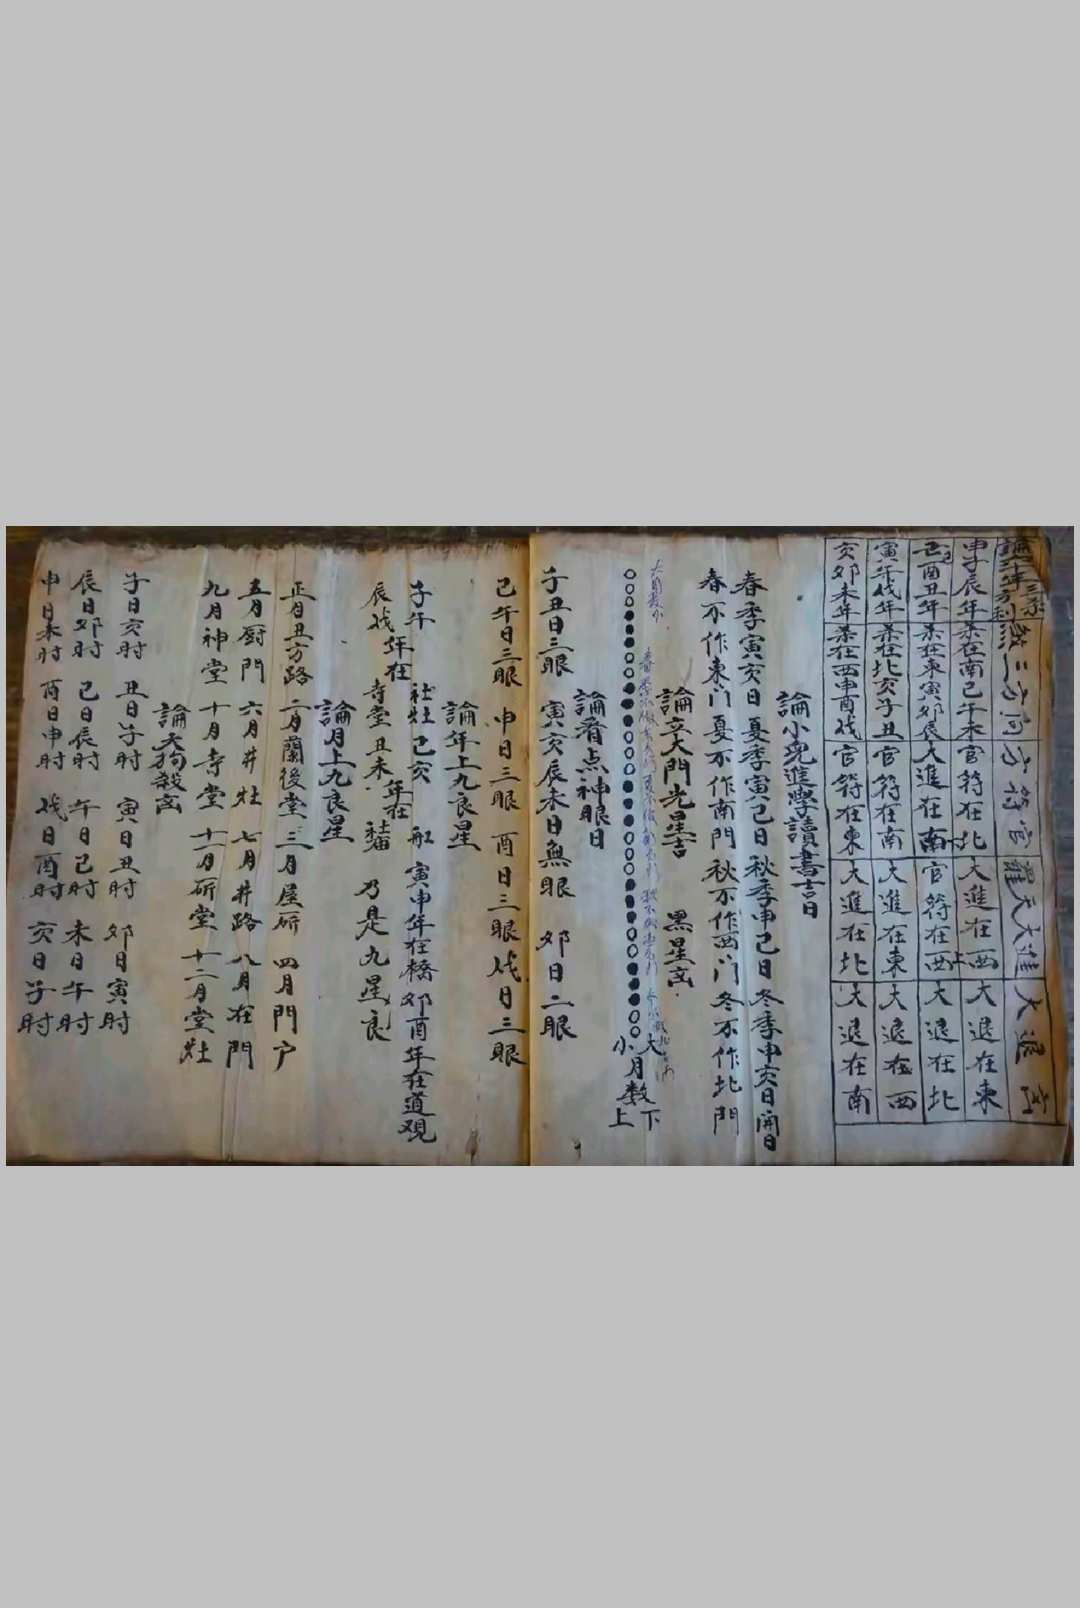 申子辰年杀在南己午未官符在北大進在西大退在東
酉丑年杀在東寅郊辰大進在南官符在西大退在北
寅午伐年杀在北亥子丑官符在南大進在東大退在西
亥郊未年杀在西申酉伐官符在東大進在北大退在南
論小兒進學讀書吉日
春季寅亥日 夏季寅己日 秋季申己日 冬季申亥日開日
春不作東门 夏不作南門 秋不作西门 冬不作北門
論立大門光星吉 黑星凶
大月数下
小月数上
論看点神眼日
子丑日三眼 寅亥辰未日無眼 郊日二眼
己午日三眼 申日三眼 酉日三眼 伐日三眼
論年上九良星
子午年在社灶 己亥年在船 寅申年在橋 郊酉年在道观
辰伐年在寺堂 丑未年在社庙 乃是九星良
論月上九良星
正月丑方路 二月蘭後堂 三月屋斫 四月門户
五月厨門 六月井灶 七月井路 八月在門
九月神堂 十月寺堂 十一月斫堂 十二月堂灶
論天狗殺凶
子日亥时 丑日子时 寅日丑时 郊日寅时
辰日郊时 己日辰时 午日己时 未日午时
申日未时 酉日申时 伐日酉时 亥日子时